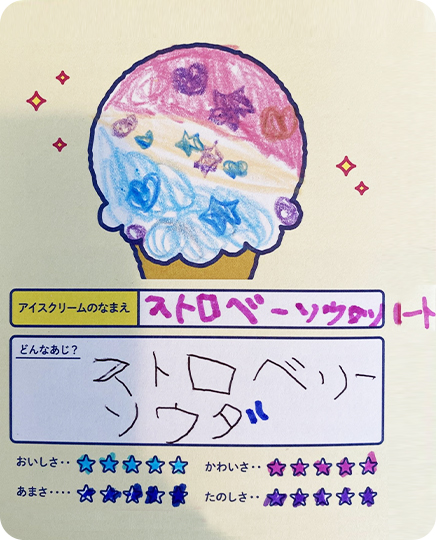 アイスクリームのなまえ ストロベーソウタソート
どんなあじ?
ストロベリー
ソウダ
おいしさ‥ ★★★★★ かわいさ‥ ★★★★★
あまさ‥‥ ★★★★★ たのしさ‥ ★★★★★